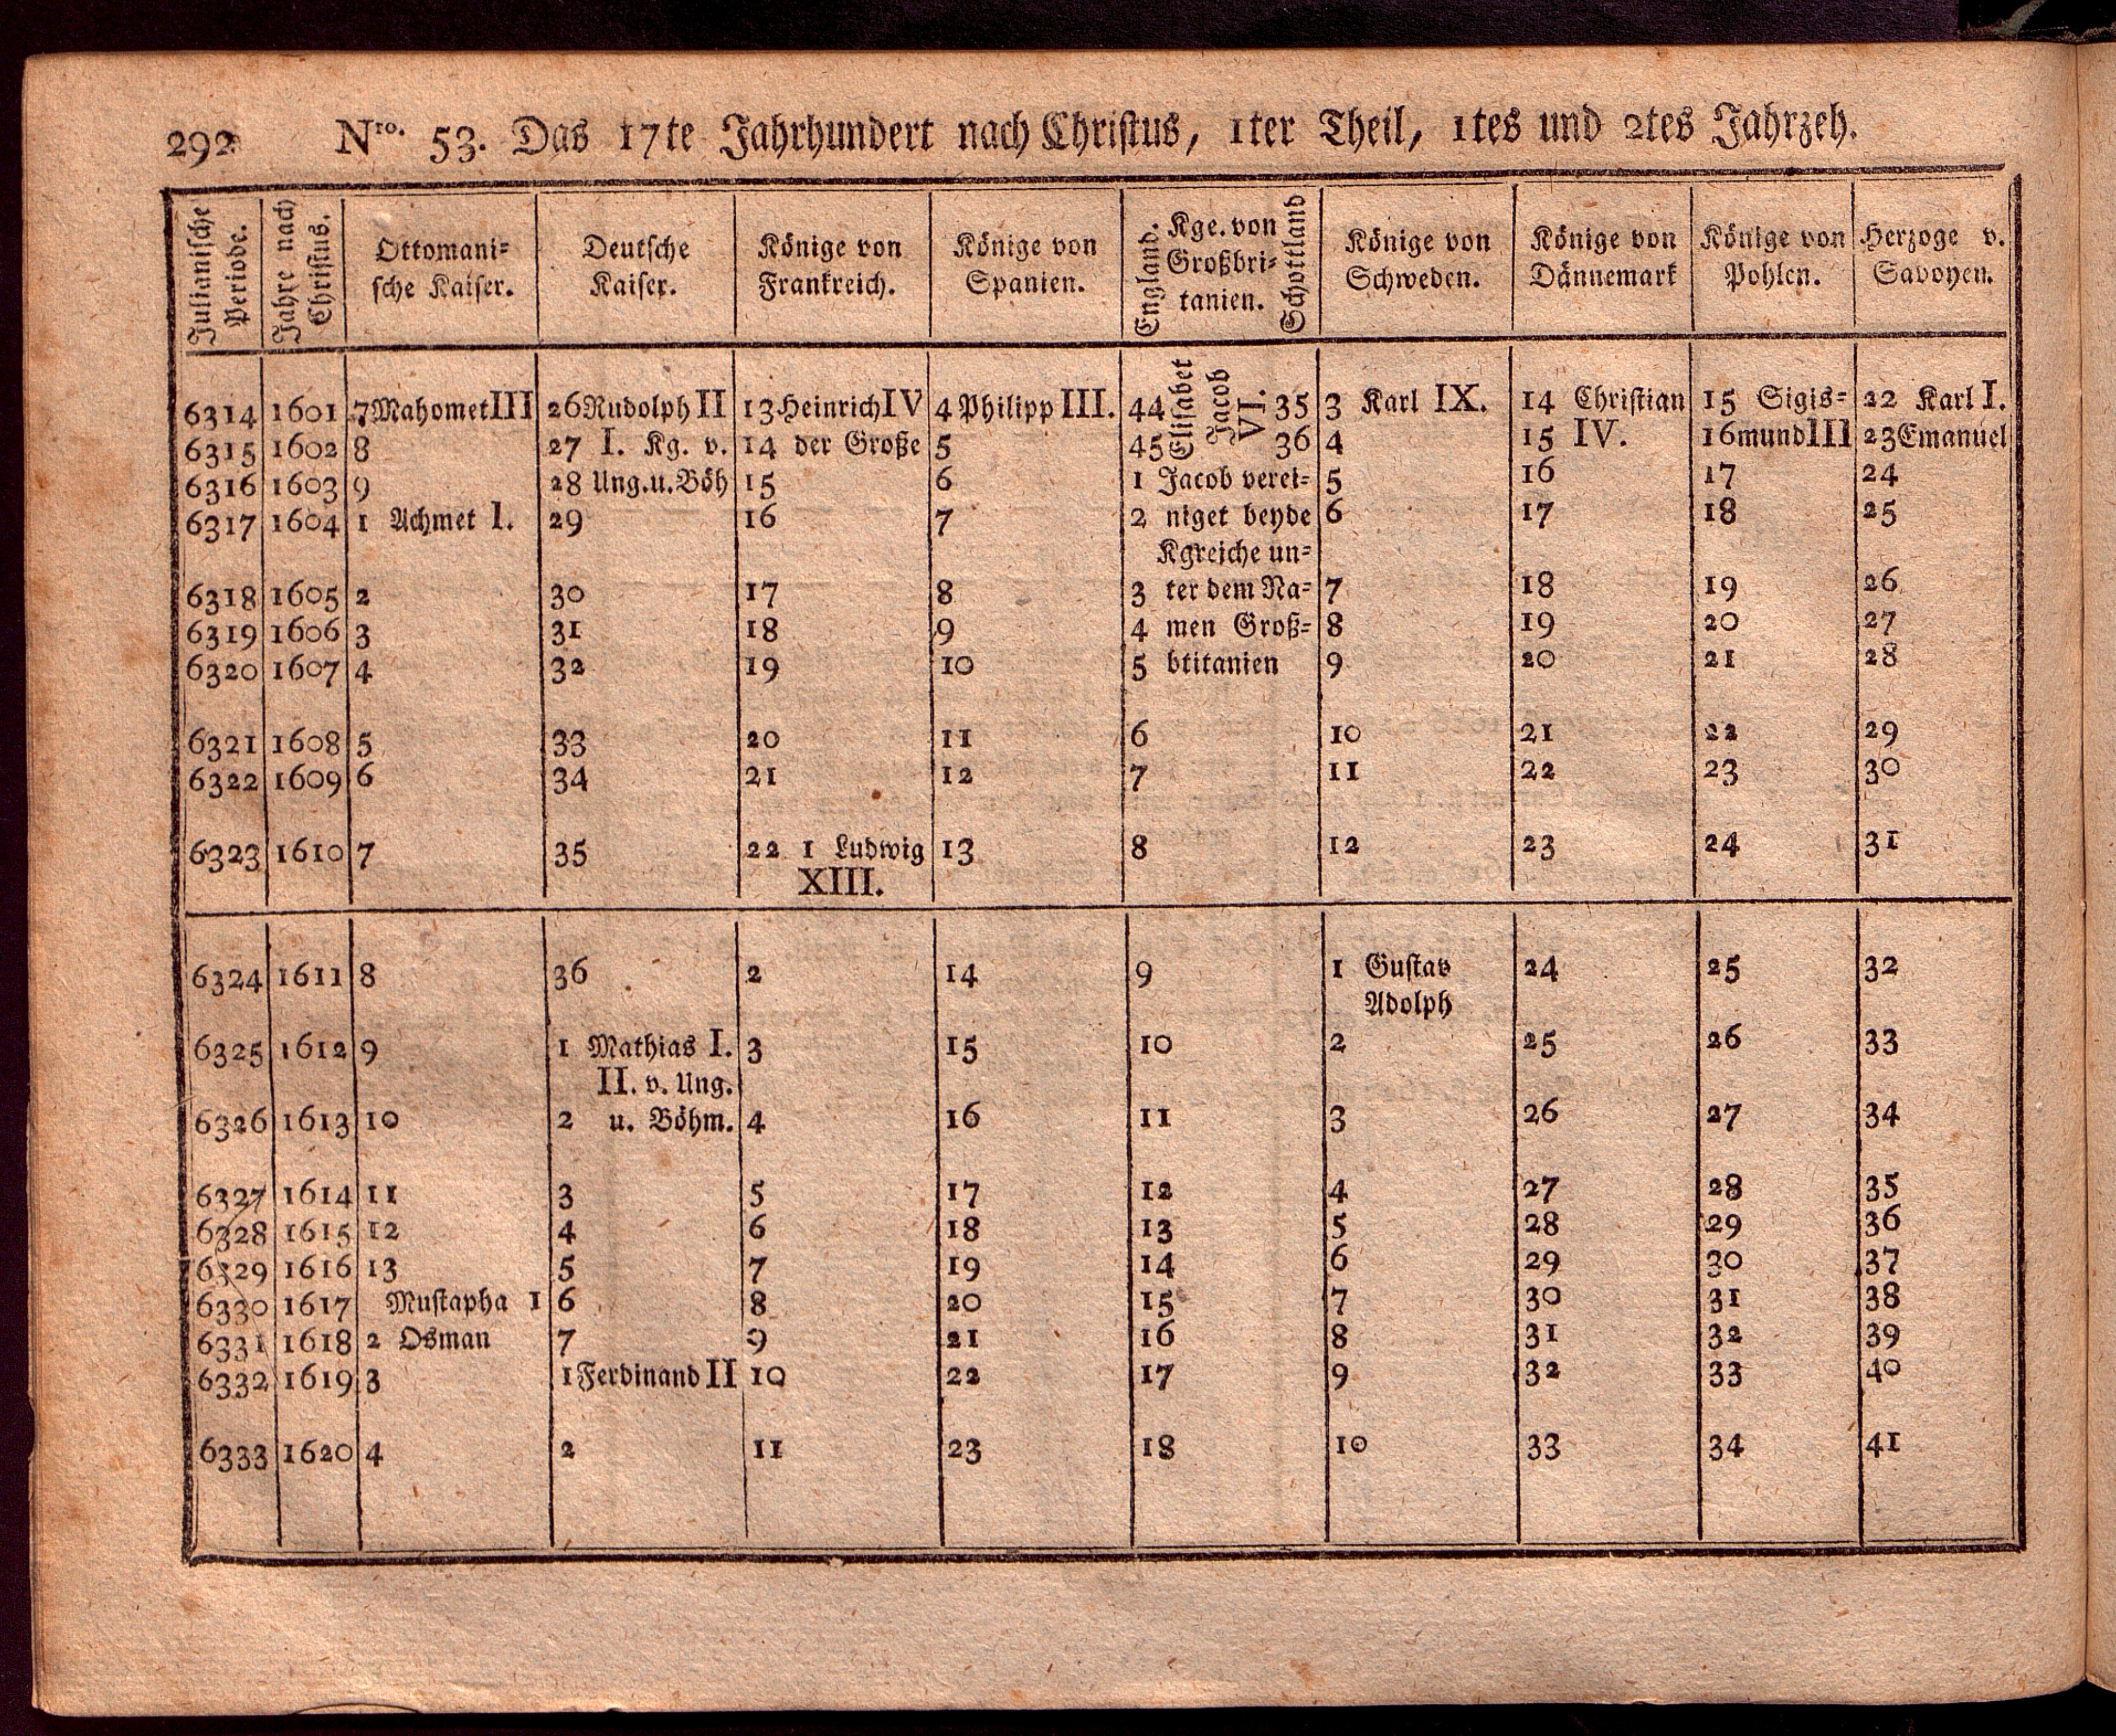 292 Nro. 53. Das 17te Jahrhundert nach Christus, 1ter Theil, 1tes und 2tes Jahrzeh.
Julianische Periode. Jahre nach Christus. Ottomani= sche Kaiser. Deutsche Kaiser. Könige von Frankreich. Könige von Spanien. England. Kge. von Großbri= tanien. Schottland Könige von Schweden. Könige von Dännemark Könige von Pohlen. Herzoge v. Savoyen.
6314 1601 7 Mahomet III 26 Rudolph II 13 Heinrich IV 4 Philipp III. 44 Elisabet Jacob VI. 35 3 Karl IX. 14 Christian 15 Sigis= 22 Karl I.
6315 1602 8 27 I. Kg. v. 14 der Große 5 45 36 4 15 IV. 16 mund III 23 Emanuel
6316 1603 9 28 Ung.u.Böh 15 6 1 Jacob verei= 5 16 17 24
6317 1604 1 Achmet I. 29 16 7 2 niget beyde 6 17 18 25
Kgreiche un=
6318 1605 2 30 17 8 3 ter dem Na= 7 18 19 26
6319 1606 3 31 18 9 4 men Groß= 8 19 20 27
6320 1607 4 32 19 10 5 btitanien 9 20 21 28
6321 1608 5 33 20 11 6 10 21 22 29
6322 1609 6 34 21 12 7 11 22 23 30
6323 1610 7 35 22 1 Ludwig 13 8 12 23 24 31
XIII.
6324 1611 8 36 2 14 9 1 Gustav 24 25 32
Adolph
6325 1612 9 1 Mathias I. 3 15 10 2 25 26 33
II. v. Ung.
6326 1613 10 2 u. Böhm. 4 16 11 3 26 27 34
6327 1614 11 3 5 17 12 4 27 28 35
6328 1615 12 4 6 18 13 5 28 29 36
6329 1616 13 5 7 19 14 6 29 30 37
6330 1617 Mustapha I 6 8 20 15 7 30 31 38
6331 1618 2 Osman 7 9 21 16 8 31 32 39
6332 1619 3 1 Ferdinand II 10 22 17 9 32 33 40
6333 1620 4 2 11 23 18 10 33 34 41